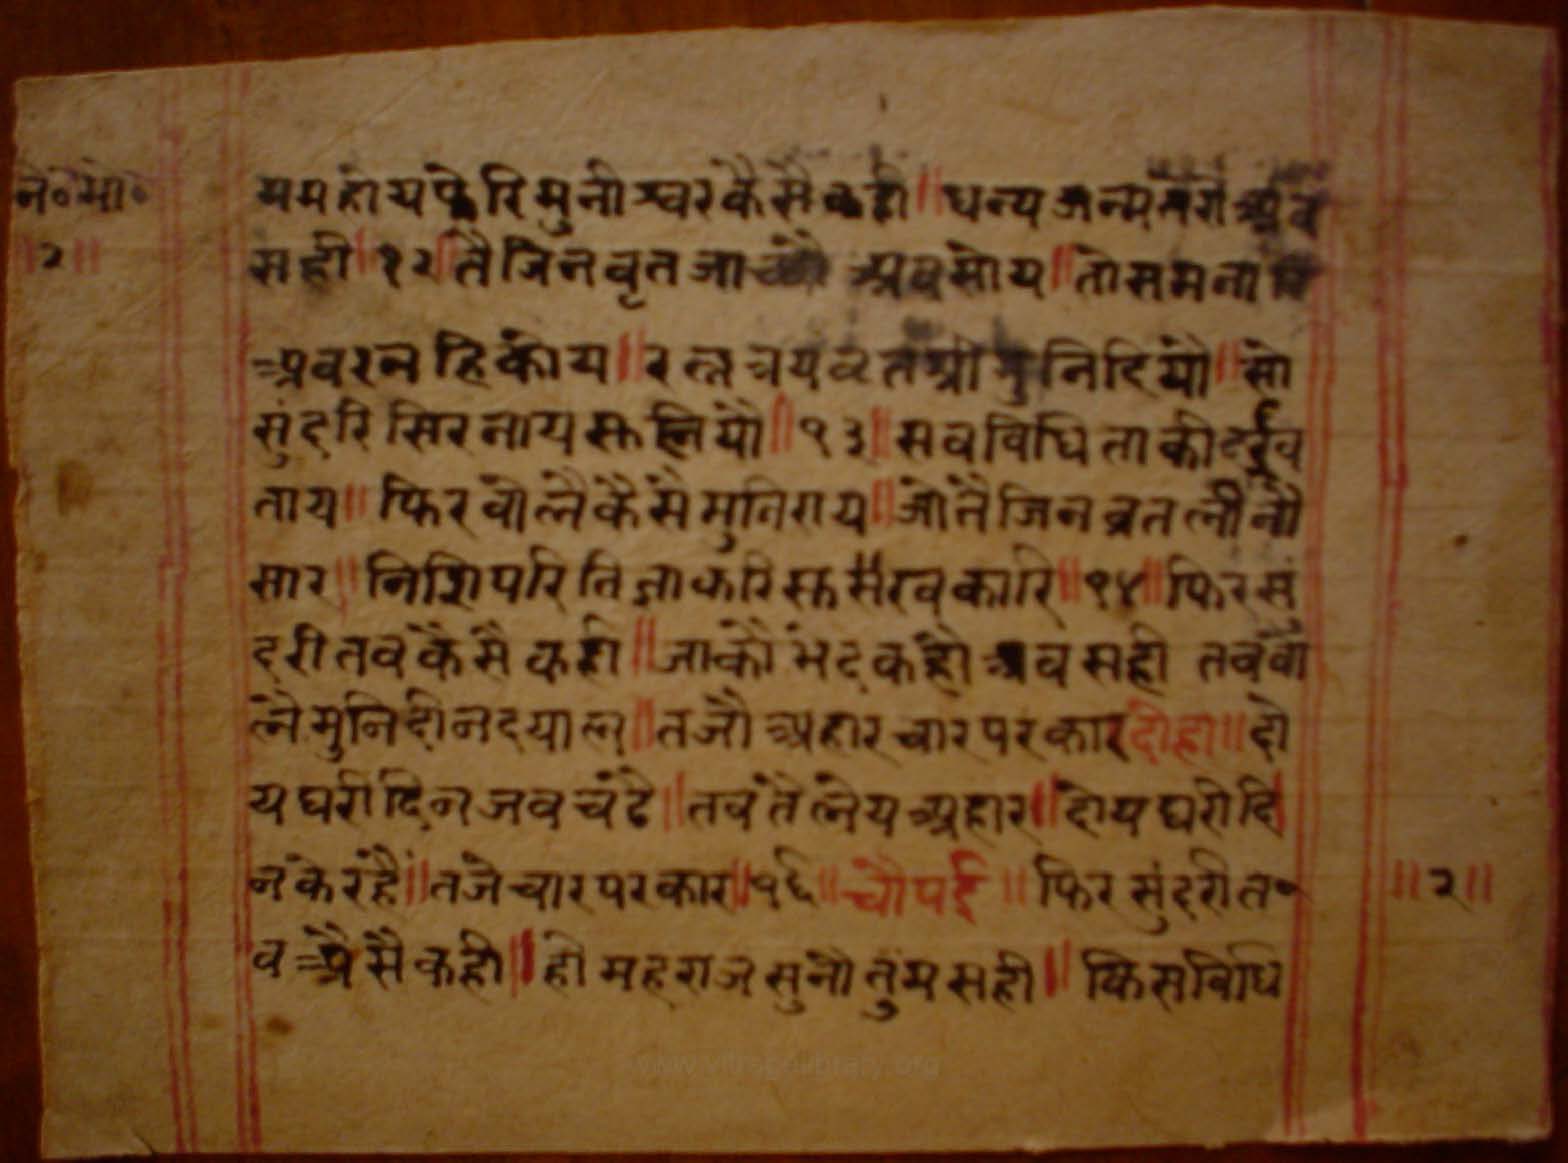 ने॰ भो॰
॥२॥
यम होय फेरि मुनीश्वर कैसै कही॥ धन्य जन्म तेरौ अव
सही॥१२॥ तै जिन वृत जाच्यौ अव सोय॥ तो सम नारि
अवर नहि कोय॥ रत्नत्रय व्रत श्री मुनि दियौ॥ सो
सुंदरि सिर नाय रु लियौ॥१३॥ सव विधि ताकी दई व
ताय॥ फिर वोले कैसै मुनिराय॥ जो तै जिन व्रत लीनौ
सार॥ निशि परितिज्ञा करि रु सैरवकारि॥१४॥ फिर सुं
दरी तव कैसै कही॥ जाकौ भेद कहौ अव सही तव वो
ले मुनि दीनदयाल॥ तजौ अहार चार परकार दोहा॥ दो
य घरी दिन जव चढे॥ तव तै लेय अहार॥ दोय घरी दि
न के रहै॥ तजे चार परकार॥१६॥ चौपई॥ फिर सुंदरी त
व अैसै कही॥ हो महराज सुनौ तुम सही॥ किस विधि
॥२॥